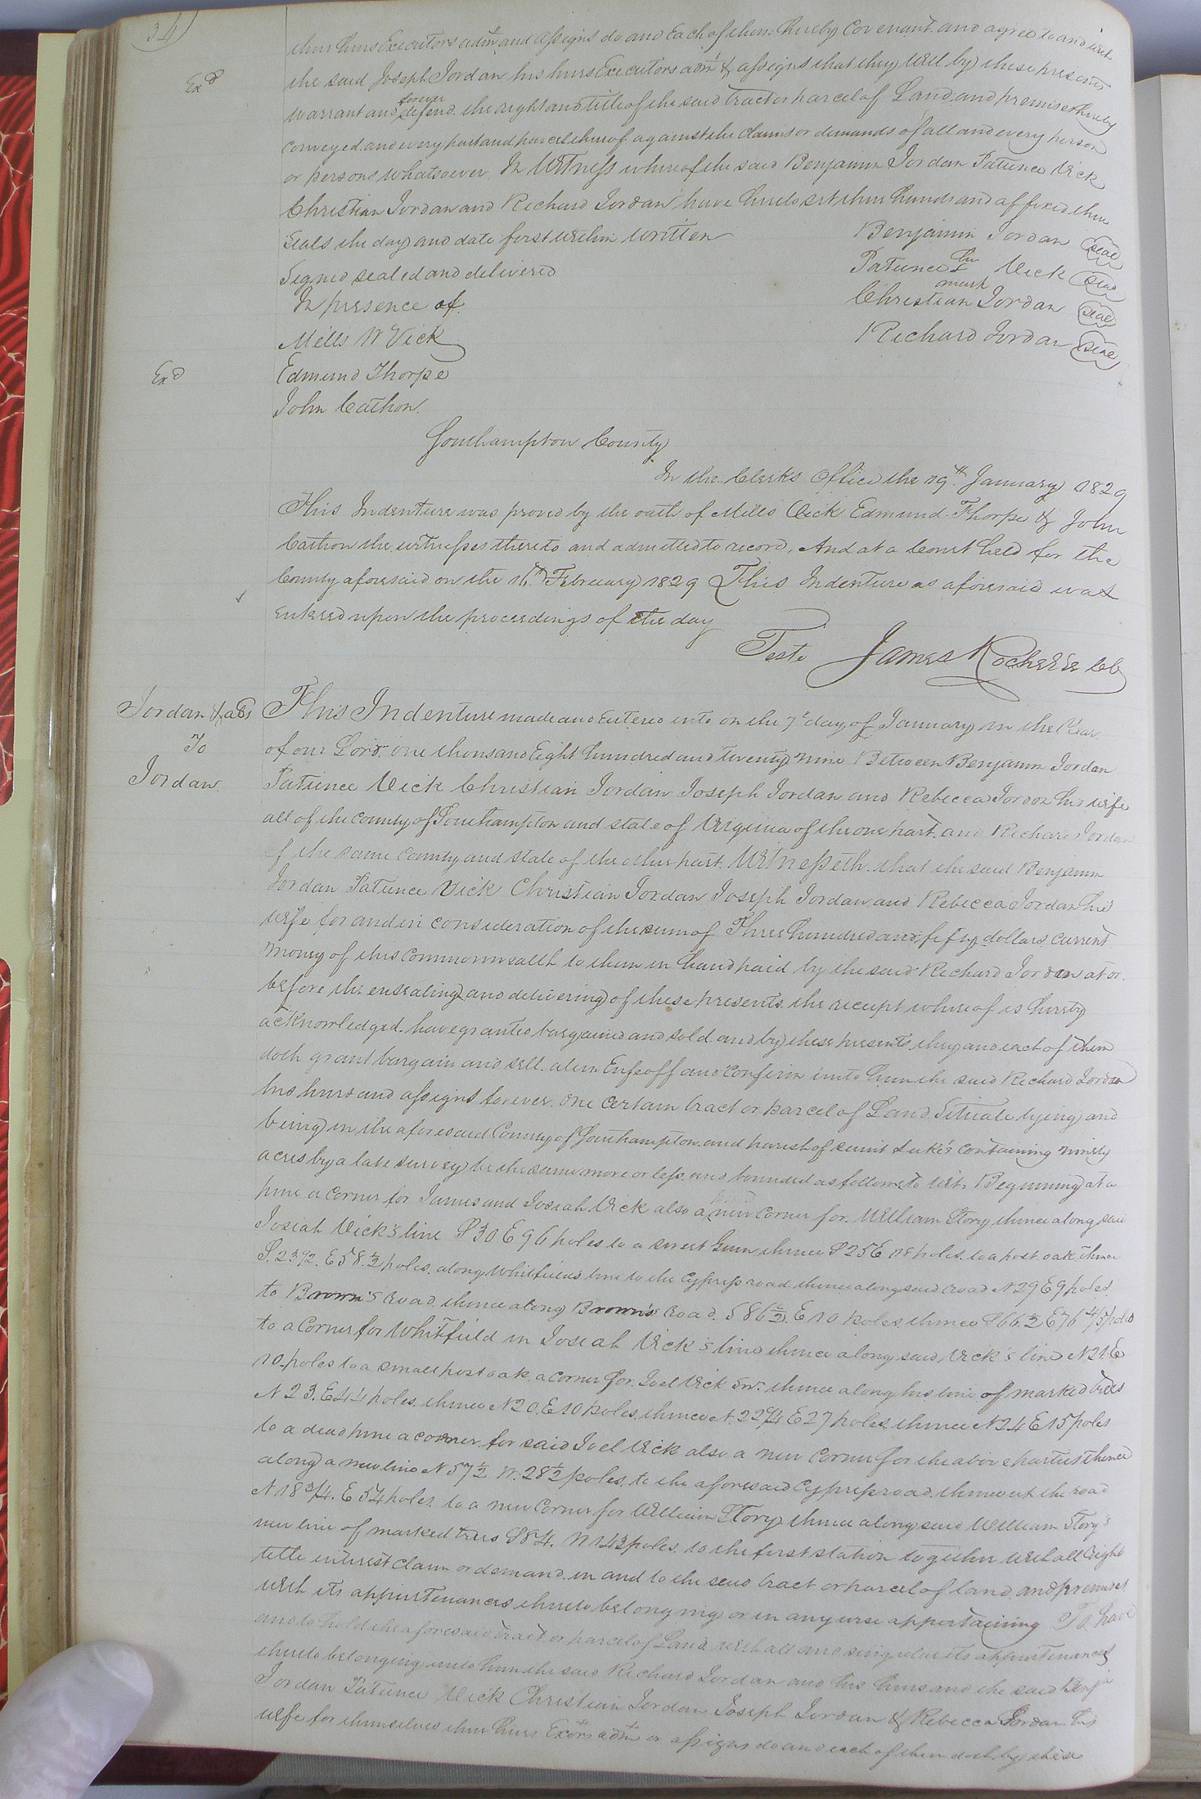 34
their heirs Executors adm.rs and assigns do and Each of them thereby Covenant and agree to and with
Ex.d
the said Joseph Jordan his heirs Executors adm.rs & assigns that they will by these presents
warrant and forever defend the right and title of the said tract or parcel of Land and premises hereby
conveyed and every part and parcel thereof against the Claims or demands of all and every person
or persons whatsoever. In Witness whereof the said Benjamin Jordan Patience Vick
Christian Jordan and Richard Jordan have hereto set their hands and affixed their
Seals the day and date first within written
Benjamin Jordan seal
Signed sealed and delivered
Patience her mark Vick seal
In presence of
Christian Jordan seal
Mills W Vick
Richard Jordan seal
Ex.d
Edmund Thorpe
John Cathon
Southampton County
In the Clerks Office the 19th January 1829
This Indenture was proved by the oath of Mills Vick Edmund Thorpe & John
Cathon the witnesses thereto and admitted to record. And at a Court held for the
County aforesaid on the 16th February 1829 This Indenture as aforesaid was
entered upon the proceedings of the day
Teste James Rochelle Clk
Jordan & als
To
Jordan
This Indenture made and entered into on the 7th day of January in the Year
of our Lord one thousand Eight hundred and twenty nine Between Benjamin Jordan
Patience Vick Christian Jordan Joseph Jordan and Rebecca Jordan his wife
all of the County of Southampton and state of Virginia of the one part and Richard Jordan
of the same County and state of the other part. Witnesseth that the said Benjamin
Jordan Patience Vick Christian Jordan Joseph Jordan and Rebecca Jordan his
wife for and in consideration of the sum of Three hundred and fifty dollars current
money of this Commonwealth to them in hand paid by the said Richard Jordan at or
before the ensealing and delivering of these presents the receipt whereof is hereby
acknowledged. have granted bargained and sold and by these presents they and each of them
doth grant bargain and sell alien Enfeoff and confirm unto him the said Richard Jordan
his heirs and assigns forever. One certain tract or parcel of Land Situate lying and
being in the aforesaid County of Southampton and parish of saint Luke's containing ninety
acres by a late survey be the same more or less and bounded as follows to wit. Beginning at a
pine a corner for James and Josiah Vick also a new corner for William Story thence along said
Josiah Vick's line S 30 E 96 poles to a sweet Gum thence S 25 E 18 poles. to a post oak thence
S. 23½. E 58.½ poles. along Whitfields line to the Cypress road thence along said road N 29 E 9 poles
to Brown's road. thence along Brown's road. S 86½. E 10 poles thence S 66½ E 76 4/5 poles
to a Corner for Whitfield in Josiah Vick's line thence along said Vick's line N 21 E
10. poles to a small post oak a corner for Joel Vick Snr. thence along his line of marked trees
N 23. E 44 poles. thence N 20. E 10 poles, thence N. 22¼ E 27 poles thence N 24 E 15 poles
to a dead pine a corner for said Joel Vick also a new Corner for the above parties thence
along a new line N 57½ W. 28½ poles. to the aforesaid Cypress road. thence up the road
N 18¾. E 54 poles. to a new Corner for William Story thence along said William Story's
new line of marked trees S 84. W 143 poles. to the first station together with all right
title interest claim or demand. in and to the said tract or parcel of land and premises
with its appurtenances thereto belonging or in any wise appertaining To have
and to hold the aforesaid tract or parcel of Land with all and singular its appurtenances
thereto belonging unto him the said Richard Jordan and his heirs and the said Benja
Jordan Patience Vick Christian Jordan Joseph Jordan & Rebecca Jordan his
wife for themselves their heirs Exors adm.rs or assigns do and each of them doth by these